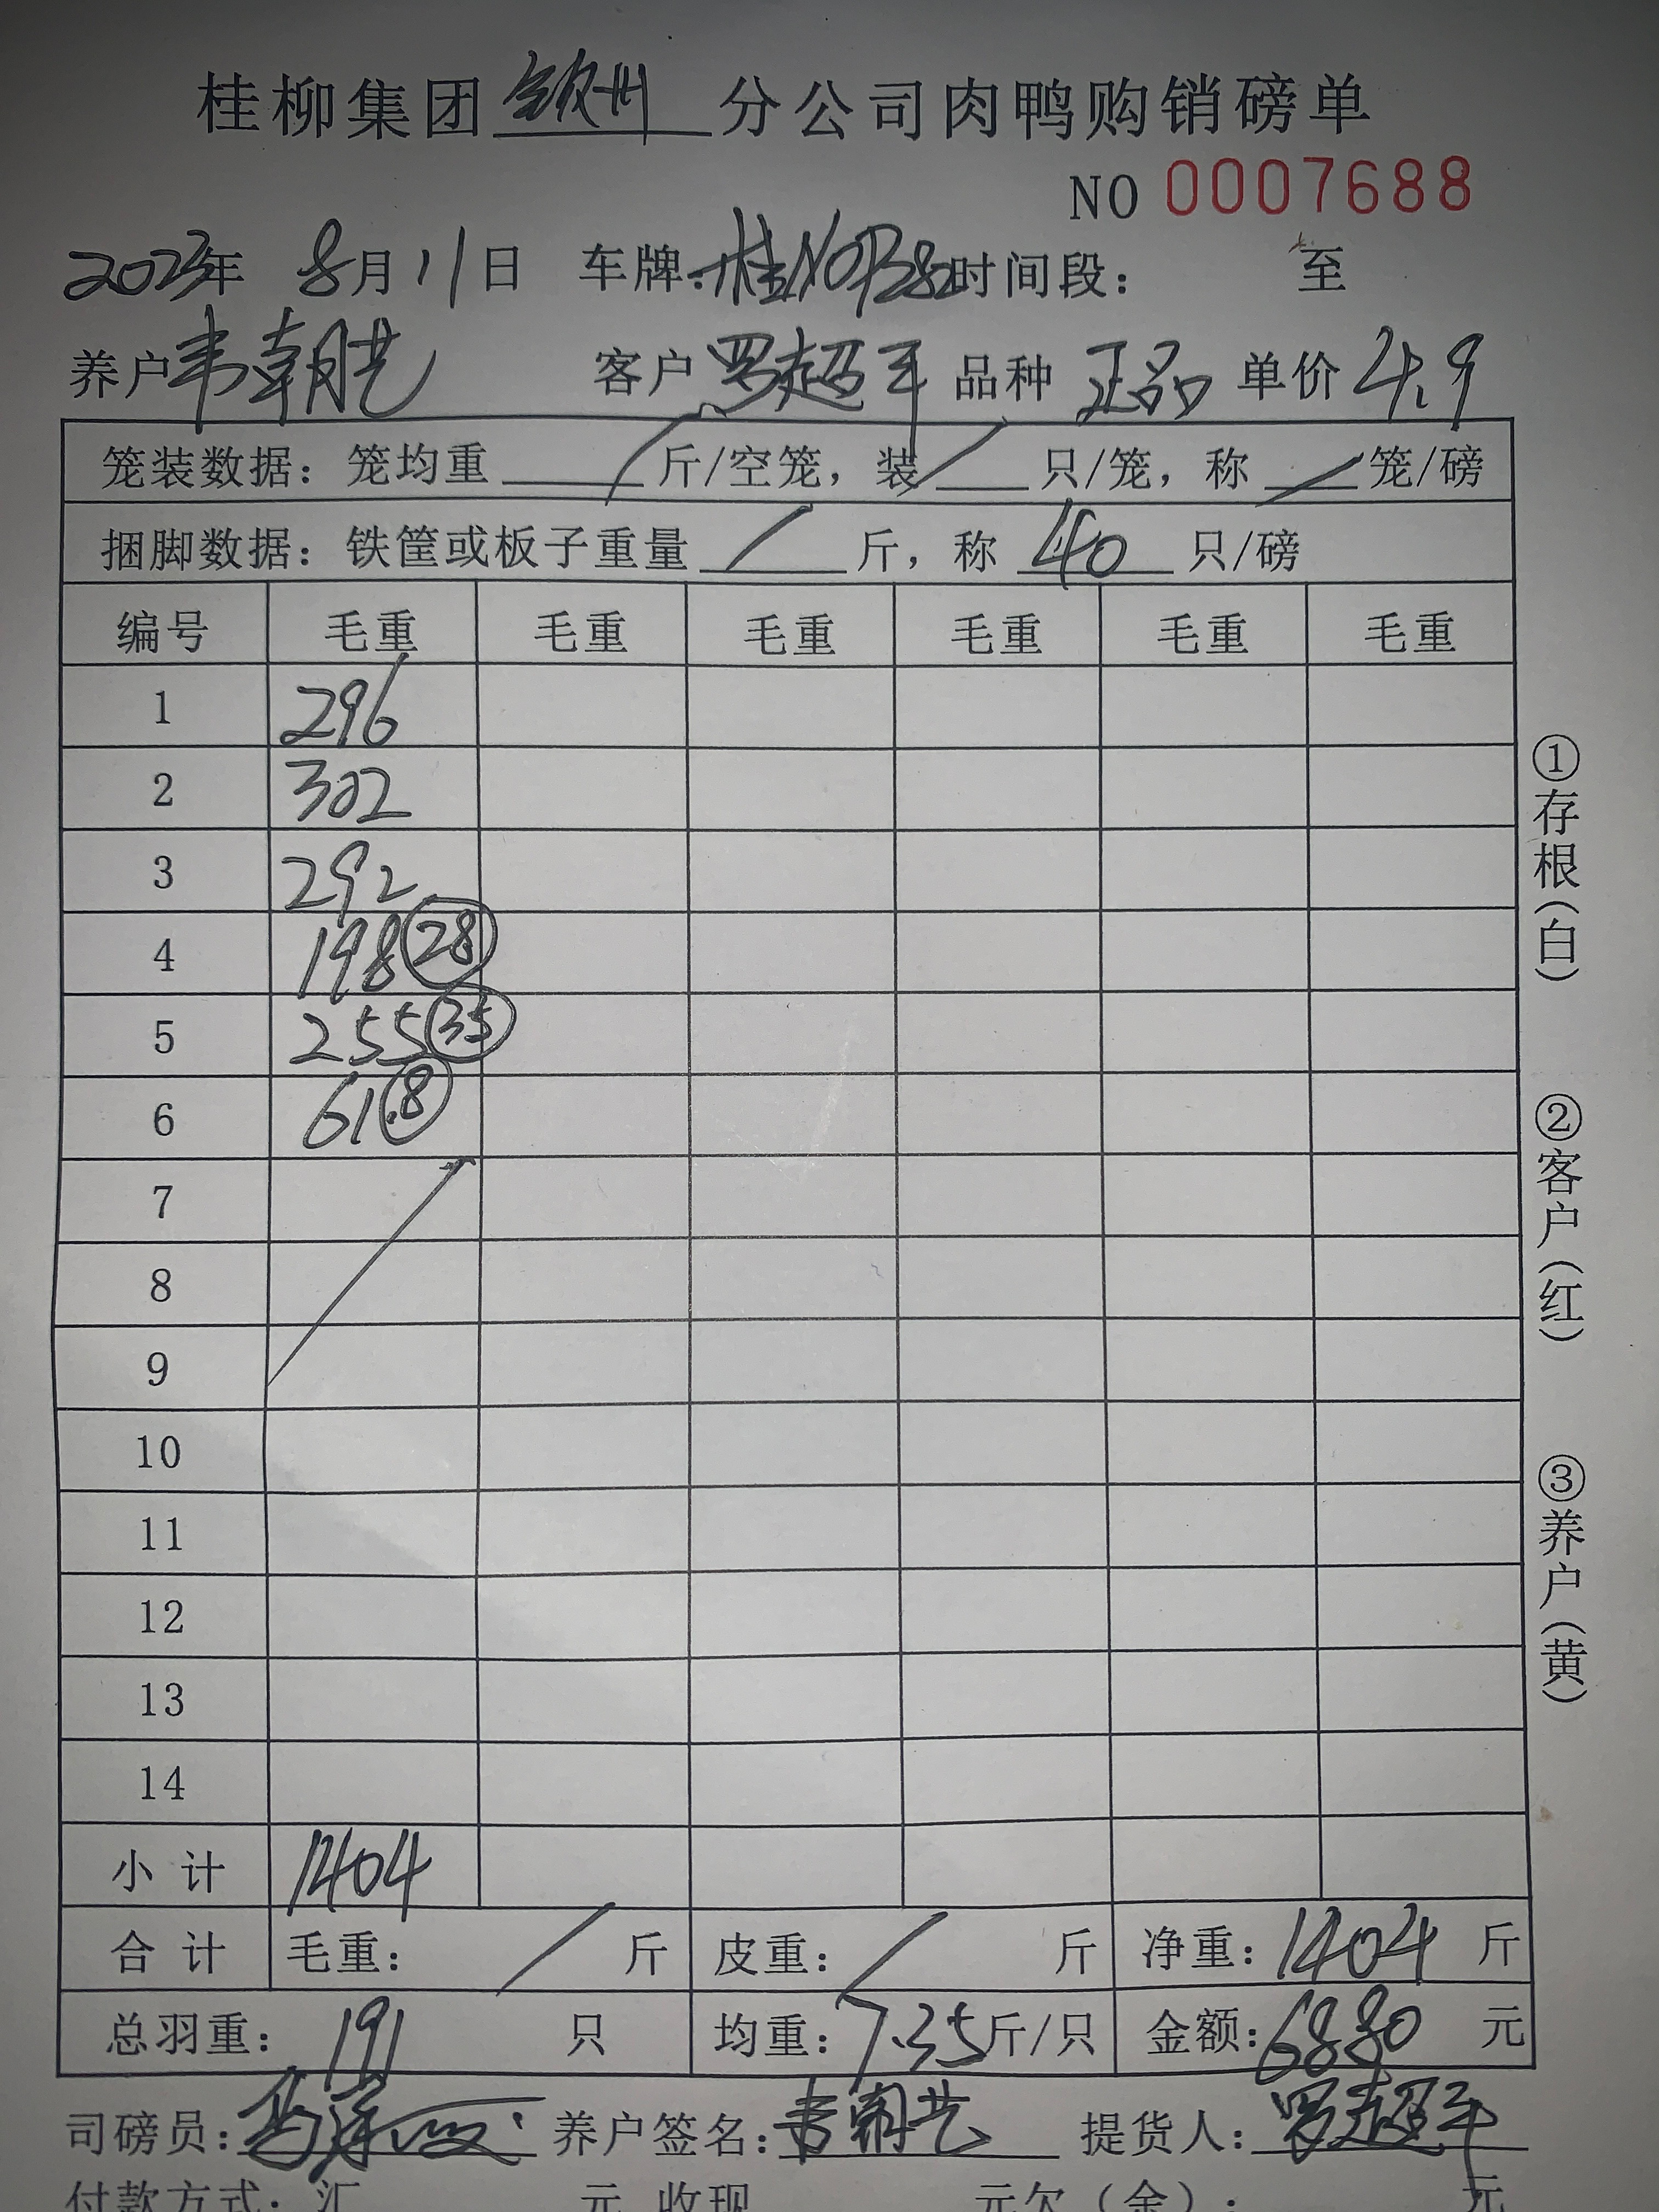 桂柳集团 钦州 分公司肉鸭购销磅单
NO 0007688
2023年 8月11日 车牌: 时间段: 至
养户 韦朝艺 客户 罗超平 品种 正品 单价 4.9
笼装数据: 笼均重 / 斤/空笼, 装 / 只/笼, 称 / 笼/磅
捆脚数据: 铁筐或板子重量 / 斤, 称 40 只/磅
编号 毛重 毛重 毛重 毛重 毛重 毛重
1 296
2 302
3 292
4 198 28
5 255 35
6 61 8
7
8
9
10
11
12
13
14
小计 1404
合计 毛重: / 斤 皮重: / 斤 净重: 1404 斤
总羽重: 191 只 均重: 7.35斤/只 金额: 6880 元
司磅员: 养户签名: 韦朝艺 提货人: 罗超平
付款方式: 汇 元 收现 元欠(金): 元
①存根(白)
②客户(红)
③养户(黄)